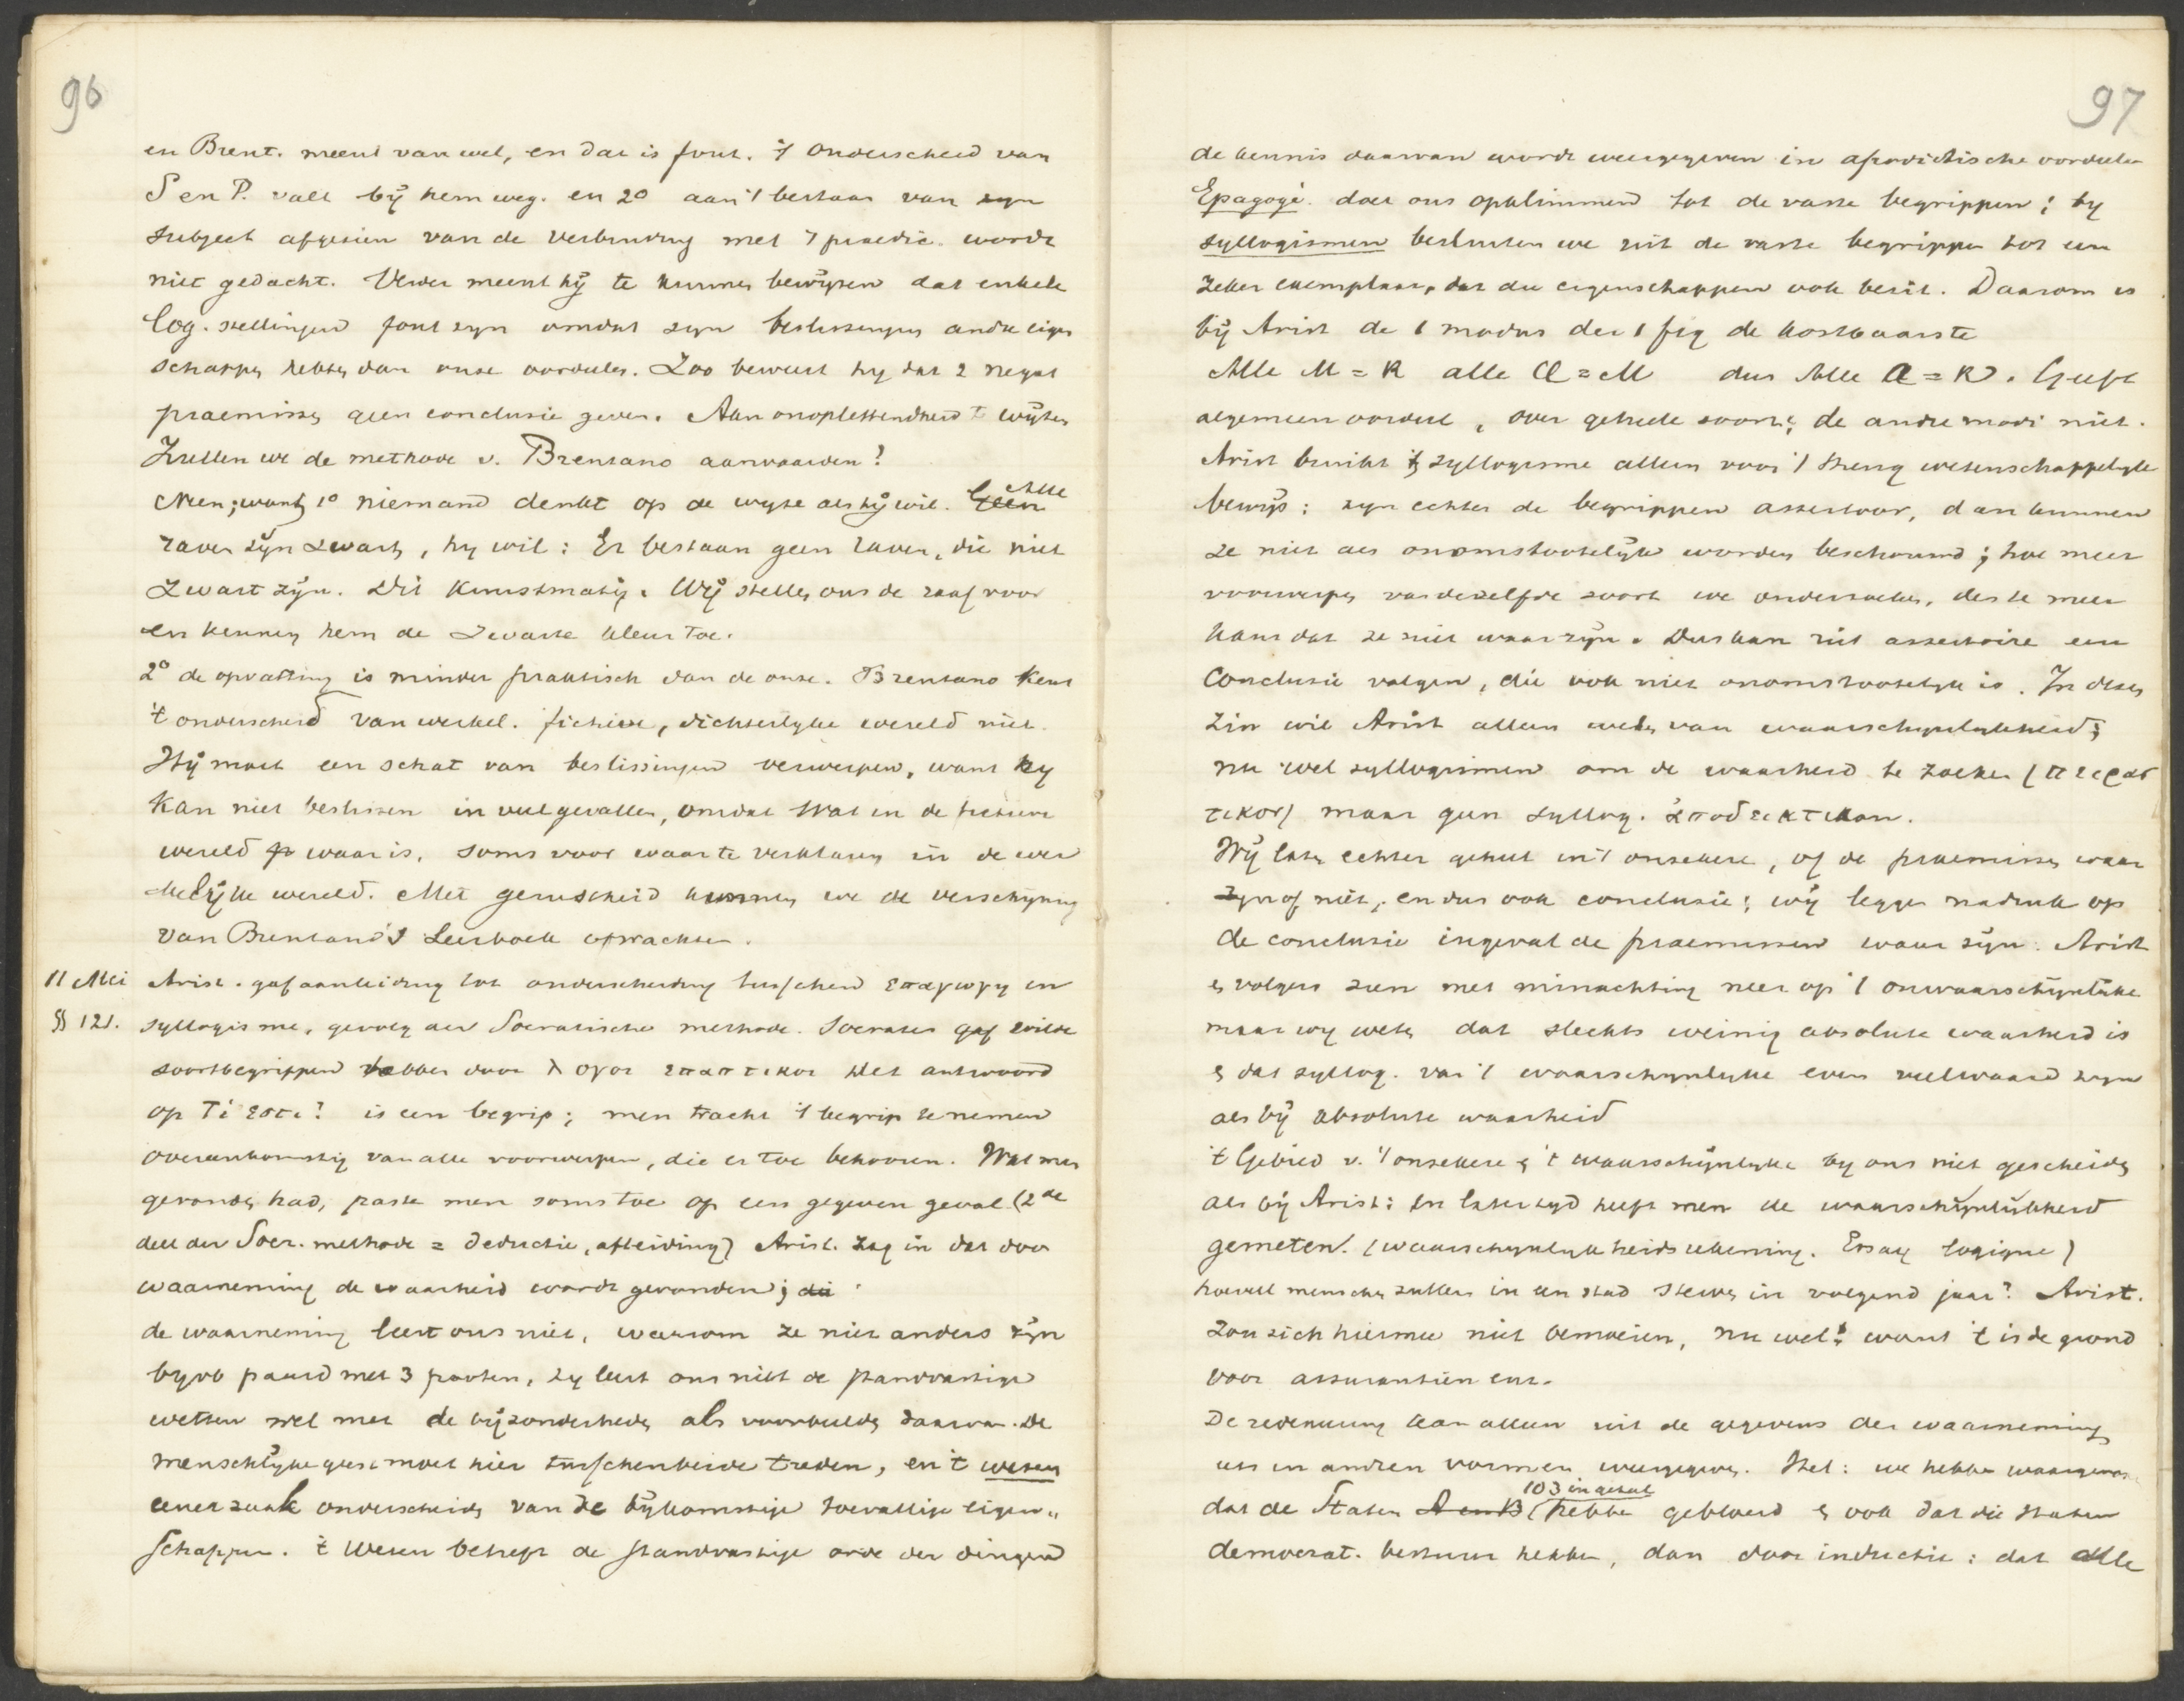 96
en Brent. meent van wel, en dat is fout. 't Onderscheid van
S en P. valt bij hem weg. en 2o aan 't bestaan van zyn
subject afgezien van de verbinding met 't praedic. wordt
niet gedacht. Verder meent hij te kunnen bewijzen dat enkele
log. stellingen fout zyn omdat zyn beslissingen andre eigen
schappen hebben dan onze oordeelen. Zoo beweert hy dat 2 negat
praemissen geen conclusie geven. Aan onoplettendheid te wijten
Zullen we de methode v. Brentano aanvaarden?
Neen; want 1o niemand denkt op de wyze als hij wil. Geen Alle
raven zijn zwart, hy wil: Er bestaan geen raven, die niet
zwart zijn. Dit kunstmatig. Wij stellen ons de raaf voor
en kennen hem de zwarte kleur toe.
2o de opvatting is minder praktisch dan de onze. Brentano kent
't onderscheid van werkel. fictieve, dichterlyke wereld niet.
Hij moet een schat van beslissingen verwerpen, want hy
kan niet beslissen in veel gevallen, omdat wat in de fictieve
wereld waar is, soms voor waar te verklaren in de wer
kelijke wereld. Met gerustheid kunnen we de verschijning
van Brentano's Leerboek afwachten.
11 Mei Arist. gaf aanleiding tot onderscheiding tusschen επαγωγη en
§§ 121. syllogisme, gevolg der Socratische methode. Socrates gaf wilde
soortbegrippen hebben door λογοι επακτικοι Het antwoord
op Τί εστι? is een begrip; men tracht 't begrip te nemen
overeenkomstig van alle voorwerpen, die er toe behooren. Wat men
gevonden had, paste men soms toe op een gegeven geval (2de
deel der Socr. methode = deductie, afleiding) Arist. zag in dat door
waarneming de waarheid wordt gevonden; die
de waarneming leert ons niet, waarom ze niet anders zijn
byvb paard met 3 pooten, zy leert ons niet de standvastige
wetten wel met de bijzonderheden als voorbeelden daarvan. De
menschlijke geest moet hier tusschenbeide treden, en 't wezen
eener zaak onderscheiden van de bijkomstige toevallige eigen„
schappen. 't Wezen betreft de standvastige orde der dingen
97
de kennis daarvan wordt weergegeven in apodictische oordeelen
Epagogè. doet ons opklimmen tot de vaste begrippen; by
syllogismen besluiten we uit de vaste begrippen tot een
zeker exemplaar, dat die eigenschappen ook bezit. Daarom is
bij Arist de 1 modus der 1 fig de kostbaarste
Alle M = R alle A = M dus Alle A = R. Geeft
algemeen oordeel, over geheele soort; de andre modi niet.
Arist bruikt 't syllogisme alleen voor 't streng wetenschappelyk
bewijs: zyn echter de begrippen assertoor, dan kunnen
ze niet als onomstootelijk worden beschouwd; hoe meer
voorwerpen van dezelfde soort we onderzoeken, des te meer
kans dat ze niet waar zijn. Dus kan uit assertoire een
conclusie volgen, die ook niet onomstootelyk is. In dezen
zin wil Arist alleen weten van waarschynlykheid;
nu wel syllogismen om de waarheid te zoeken (πειρασ
τικος) maar geen syllog. αποδεικτικον.
Wij laten echter geheel in 't onzekere, of de praemissen waar
zyn of niet, en dus ook conclusie; wij leggen nadruk op
de conclusie ingeval de praemissen waar zijn. Arist
& volgers zien met minachting neer op 't onwaarschijnlijke
maar wy weten dat slechts weinig absolute waarheid is
& dat syllog. van 't waarschynlyke even veel waard zyn
als bij absolute waarheid
't Gebied v. 't onzekere & 't waarschijnlyke by ons niet gescheiden
als bij Arist: In later tyd heeft men de waarschijnlijkheid
gemeten. (waarschynlykheidsrekening. Essay logique)
hoeveel menschen zullen in een stad sterven in volgend jaar? Arist.
zou zich hiermee niet bemoeien, nu wel: want 't is de grond
voor assurantiën enz.
De redeneering kan alleen uit de gegevens der waarneming
iets in andren vormen weergegeven. Stel: we hebben waargenomen
dat de Staten A en B (103 in getal hebben gebloeid & ook dat die staten
democrat. bestuur hebben, dan door inductie: dat alle